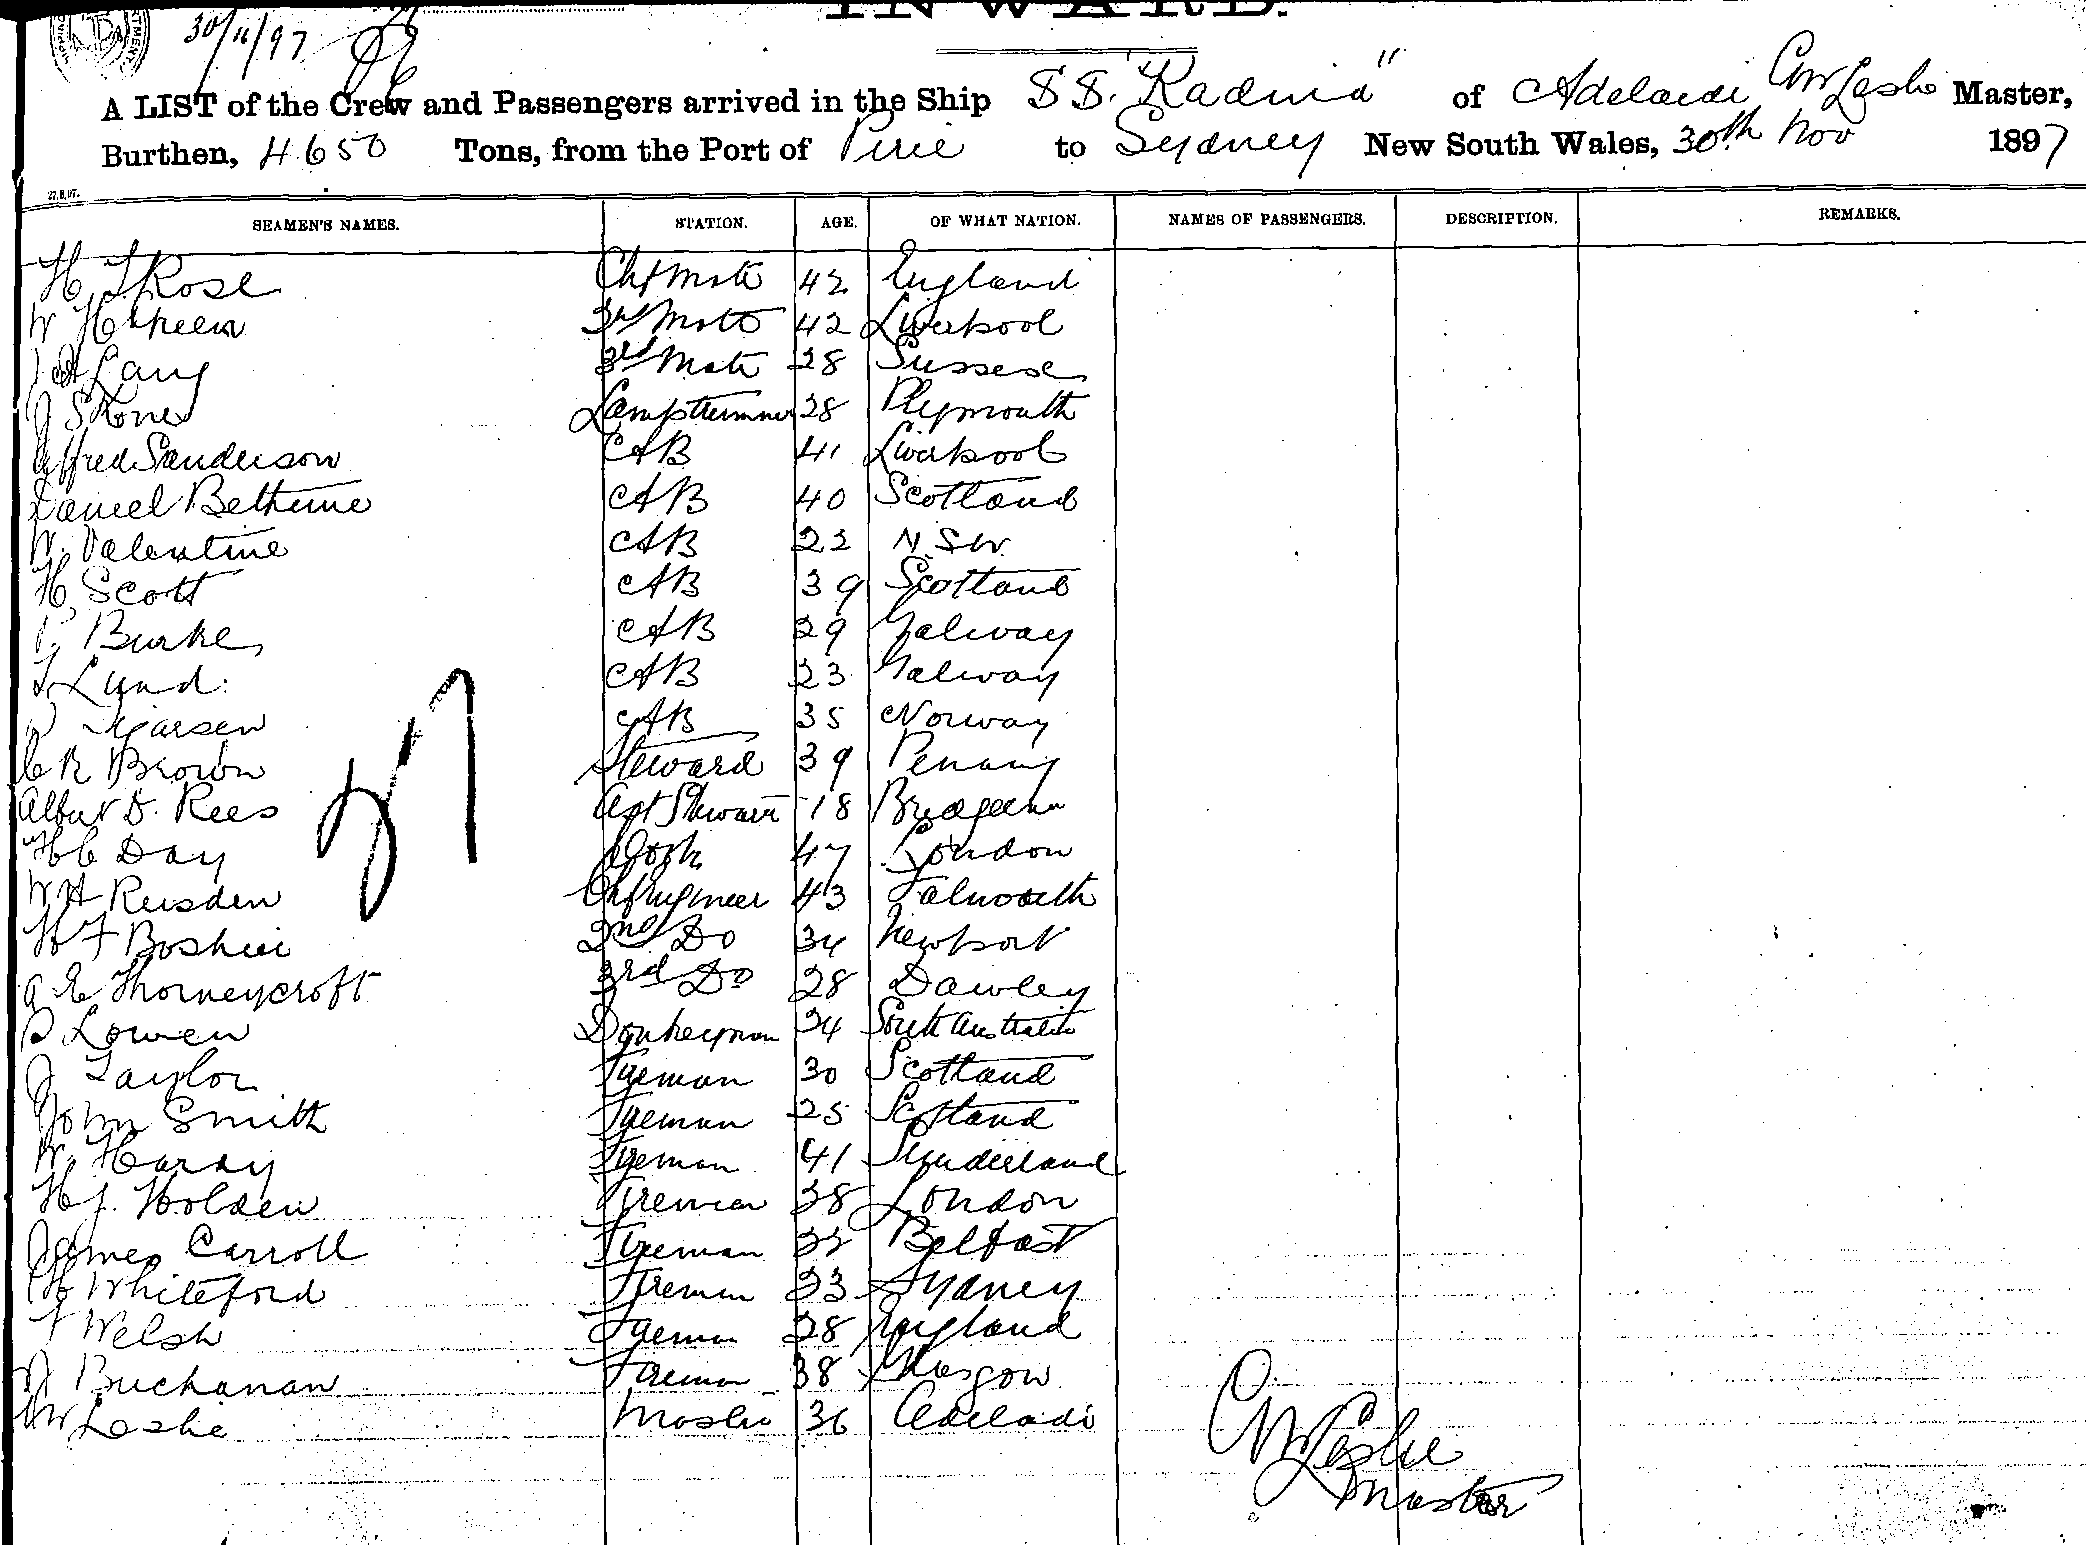 INWARD.
30/11/97
A LIST of the Crew and Passengers arrived in the Ship SS. "Kadina" of Adelaide CW Leslie Master,
Burthen, 4650 Tons, from the Port of Pirie to Sydney New South Wales, 30th Nov 1897
27.8.97.
SEAMEN'S NAMES. STATION. AGE. OF WHAT NATION. NAMES OF PASSENGERS. DESCRIPTION. REMARKS.
H J Rose Chf Mate 42 England
W H 2nd Mate 42 Liverpool
Lang 3rd Mate 28 Sussex
J Stone Lamptrimmer 28 Plymouth
Alfred Sanderson AB 41 Liverpool
Daniel Bethune AB 40 Scotland
W. Valentine AB 22 N.S.W.
H Scott AB 39 Scotland
P. Burke AB 29 Galway
T Lund. AB 23 Galway
AB 35 Norway
C R Brown Steward 39 Penang
Albert D. Rees Ast Steward 18 Bridgend
27
H C Day Cook 47 London
W H Rusden Ch Engineer 43 Falmouth
H F Boshier 2nd Do 34 Newport
A E Thorneycroft 3rd Do 28 Dawley
Lowen Donkeyman 34 South Australia
J Taylor Fireman 30 Scotland
John Smith Fireman 25 Scotland
W. Hardy Fireman 41 Sunderland
H J. Holden Fireman 38 London
James Carroll Fireman 32 Belfast
H Whiteford Fireman 33 Sydney
T Welsh Fireman 28 England
J Buchanan Fireman 38 Glasgow
CW Leslie Master 36 Adelaide
CW Leslie
Master